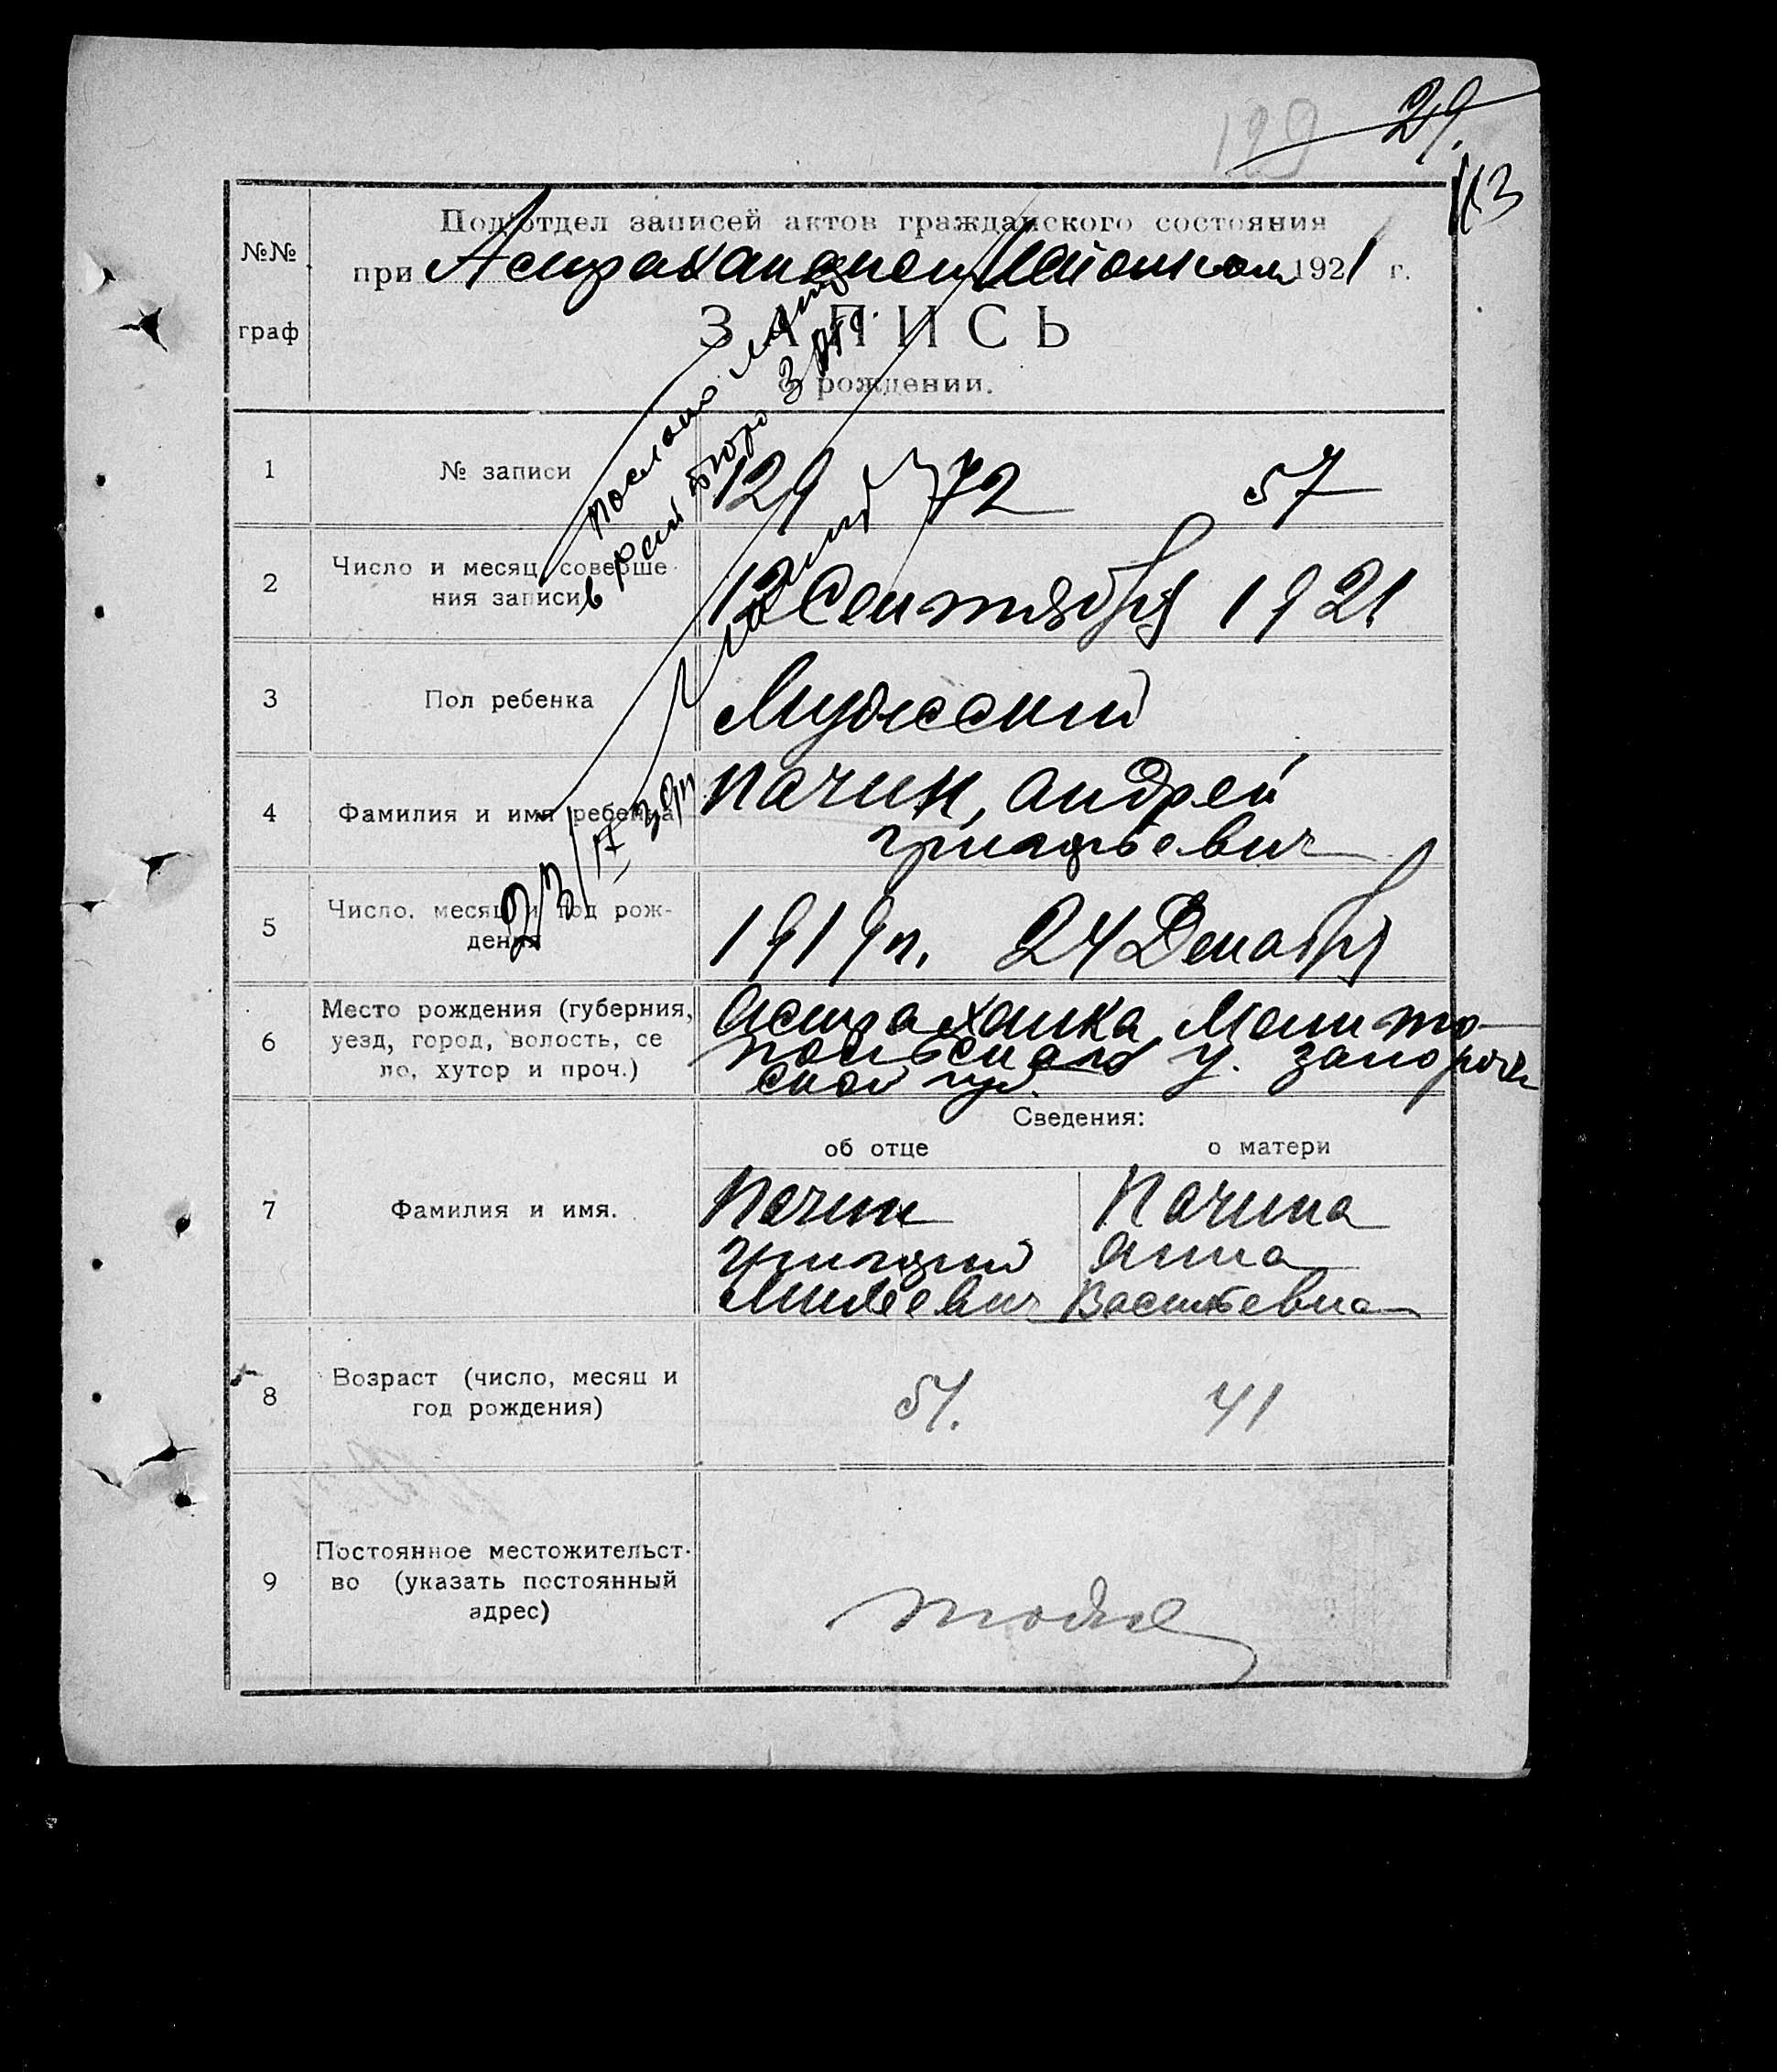 129 29.
113
№№ граф
Подотдел записей актов гражданского состояния
при Астраханском 1921 г.
ЗАПИСЬ
о рождении.
послано
в рай бюро ЗАГС
1 № записи 129 72 57
2 Число и месяц соверше-
ния записи 12 Сентября 1921
3 Пол ребенка Мужеский
4 Фамилия и имя ребенка Пачин, Андрей
Григорьевич
5 Число, месяц и год рож-
дения 1919 г. 24 Декабря
6 Место рождения (губерния,
уезд, город, волость, се
ло, хутор и проч.)
Астраханка, Мелито-
польского у. Запорож
ской губ.
Сведения:
об отце о матери
7 Фамилия и имя.
Пачин Пачина
Григорий Анна
Михеевич Васильевна
8 Возраст (число, месяц и
год рождения) 51. 41
9 Постоянное местожительст-
во (указать постоянный
адрес)
тоже